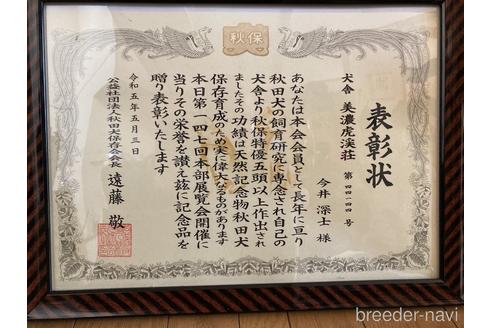 秋保
表彰状
犬舎 美濃虎渓荘
今井 深士 様
あなたは本会会員として長年に亘り
秋田犬の飼育研究に専念され自己の
犬舎より秋保特優五頭以上作出され
ましたその功績は天然記念物秋田犬
保存育成のため実に偉大なるものがあります
本日第一四七回本部展覧会開催に
当りその栄誉を讃え茲に記念品を
贈り表彰いたします
令和五年五月三日
公益社団法人秋田犬保存会会長 遠藤 敬
breeder-navi